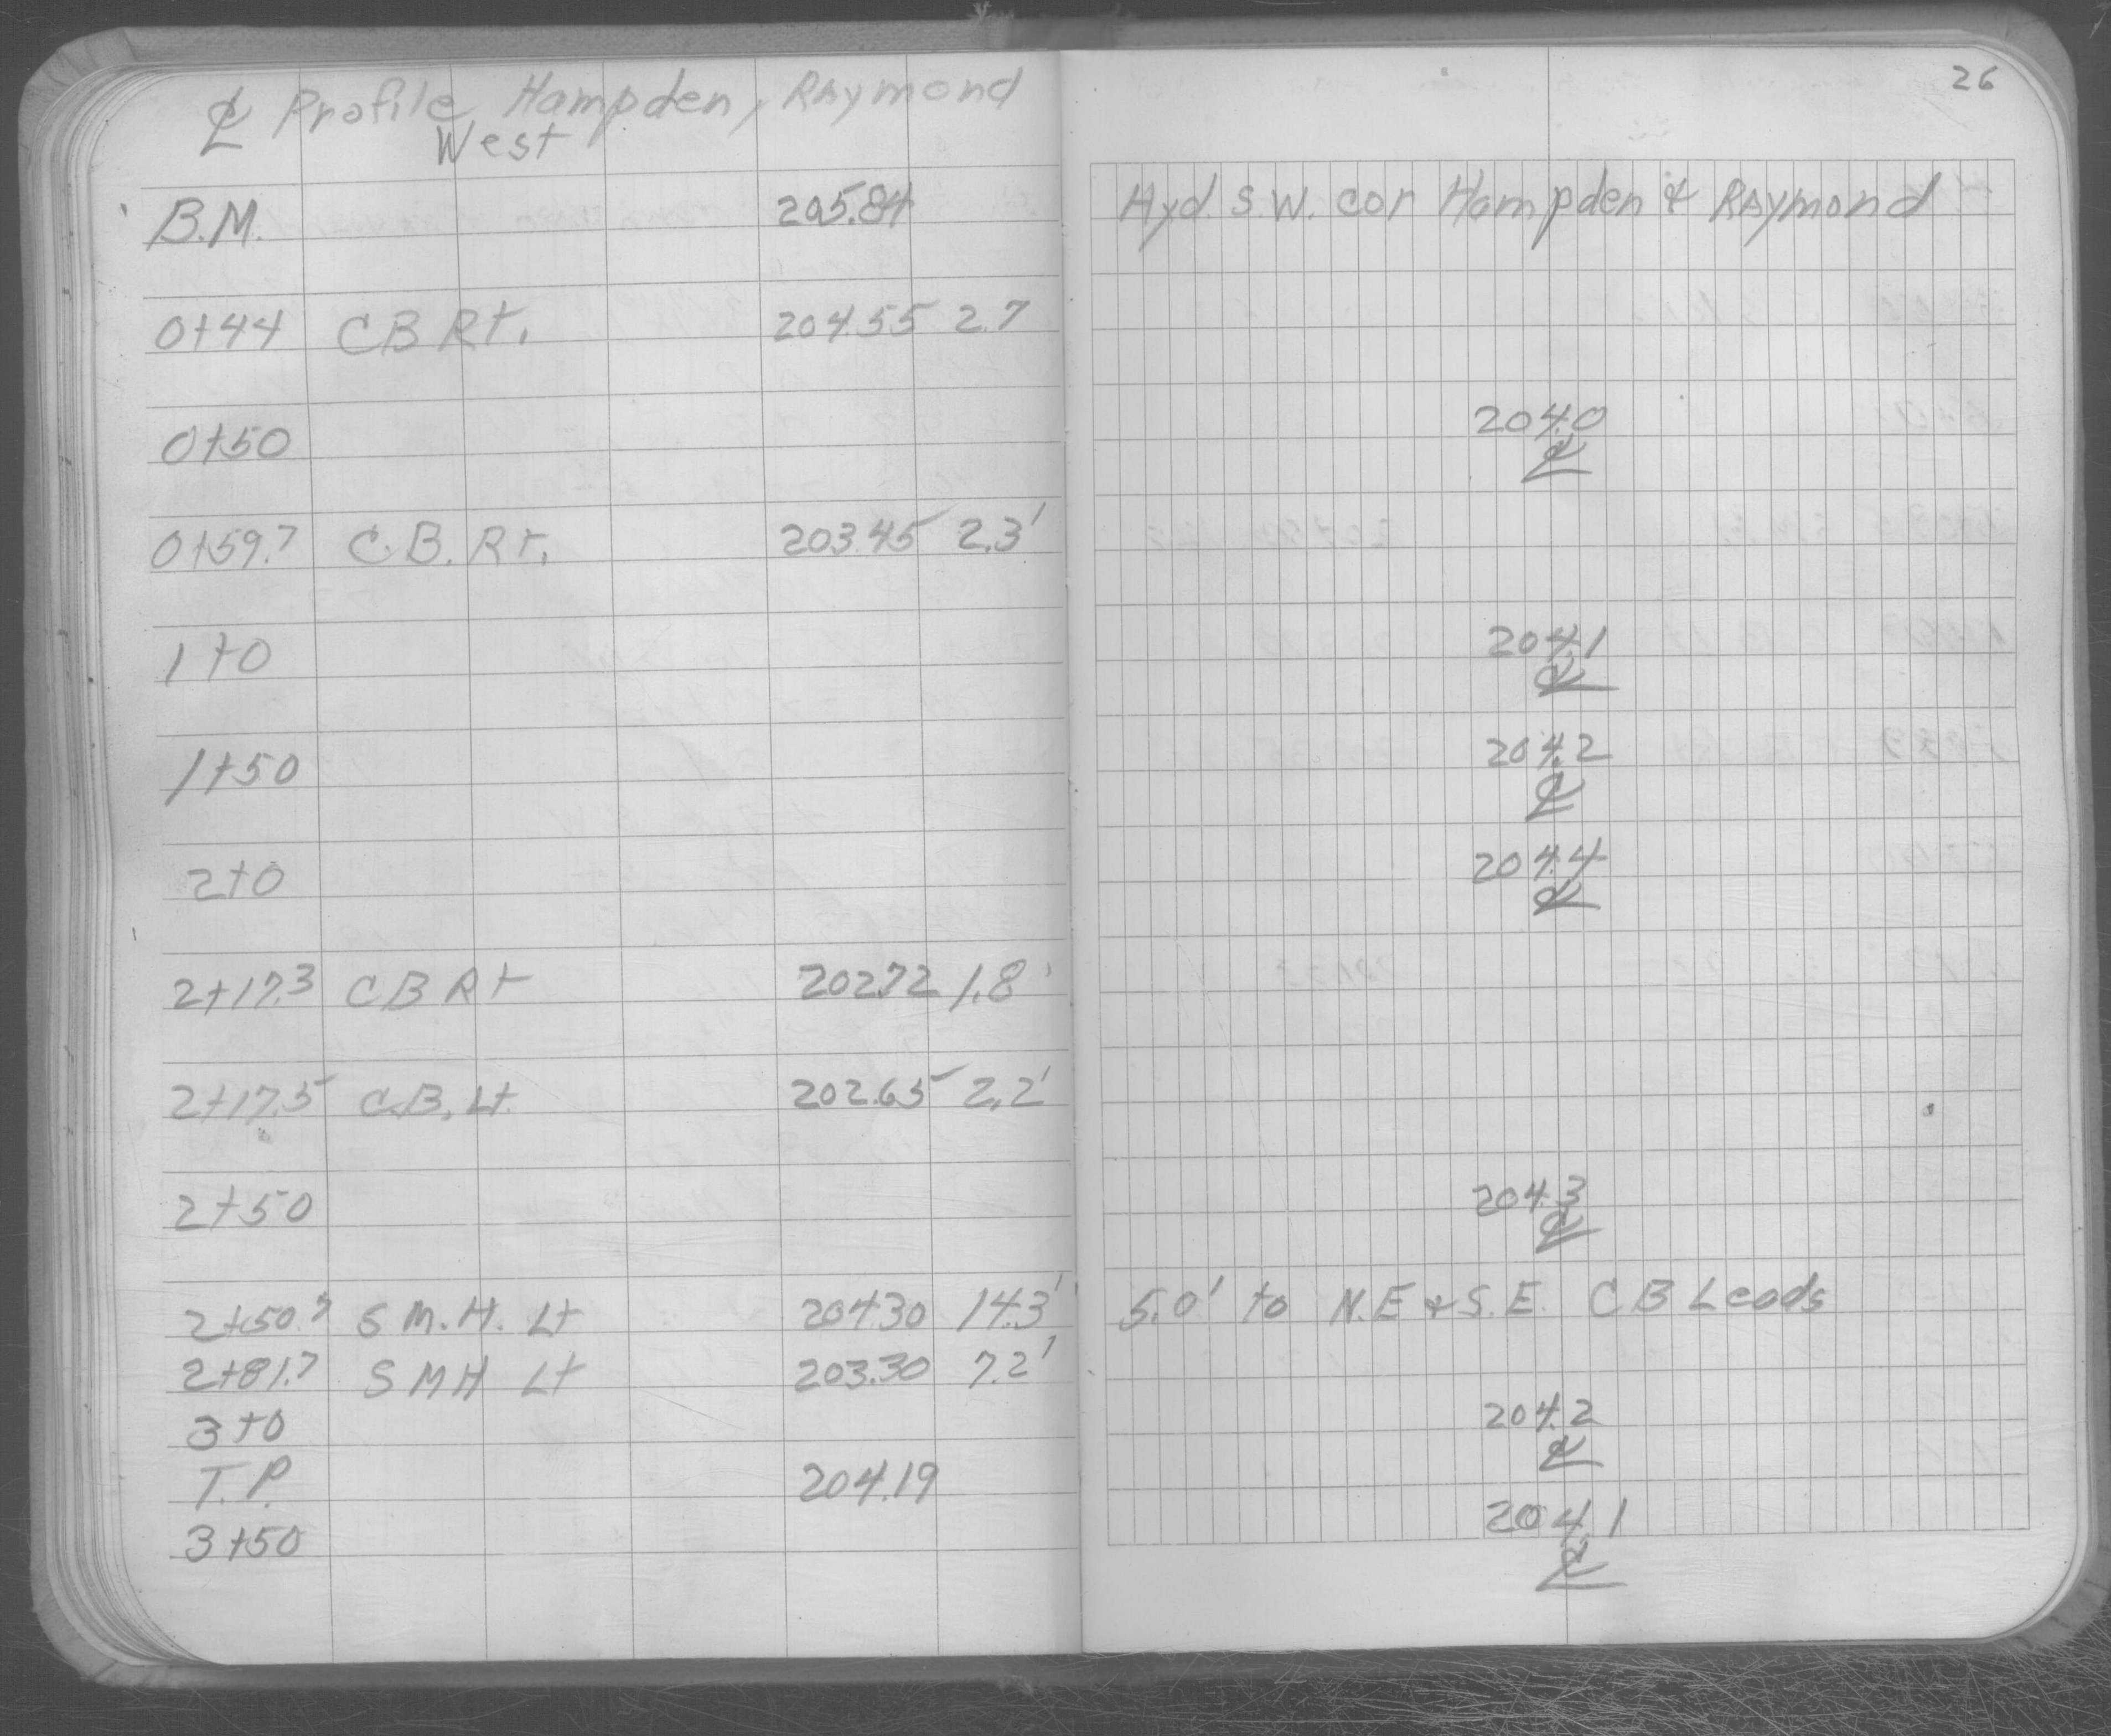 ℄ Profile Hampden, Raymond
West
26
B.M. 205.84 Hyd. S.W. cor Hampden & Raymond
0+44 CB Rt. 204.55 2.7
0+50 204.0 ℄
0+59.7 C.B. Rt. 203.45 2.3'
1+0 204.1 ℄
1+50 204.2 ℄
2+0 204.4 ℄
2+17.3 CB Rt 202.72 1.8'
2+17.5 C.B. Lt. 202.65 2.2'
2+50 204.3 ℄
2+50.7 S M.H. Lt 204.30 14.3' 5.0' to N.E & S.E. CB Leads
2+81.7 S M H Lt 203.30 7.2'
3+0 204.2 ℄
T.P. 204.19
3+50 204.1 ℄